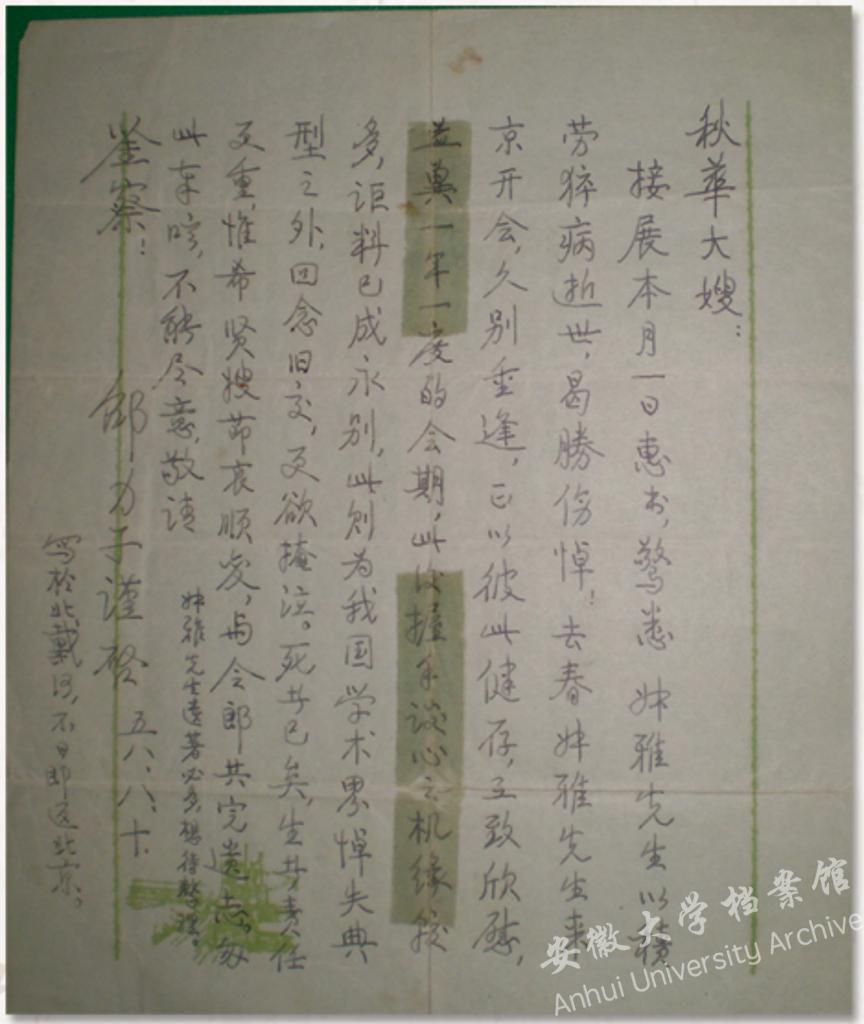 秋华大嫂：
接展本月一日惠书，惊悉 叔雅先生以积
劳猝病逝世，曷胜伤悼！去春叔雅先生来
京开会，久别重逢，正以彼此健存，互致欣慰，
并冀一年一度的会期，此后握手谈心之机缘较
多，讵料已成永别，此则为我国学术界悼失典
型之外，回念旧交，更欲掩泣。死者已矣，生者责任
更重，惟希 贤嫂节哀顺变，与令郎共完遗志，匆
此奉唁，不能尽意，敬请
鉴察！
叔雅先生遗著必多，想待整理。
邵力子谨启 五八.八.十.
写于北戴河，不日即返北京。
安徽大学档案馆
Anhui University Archive